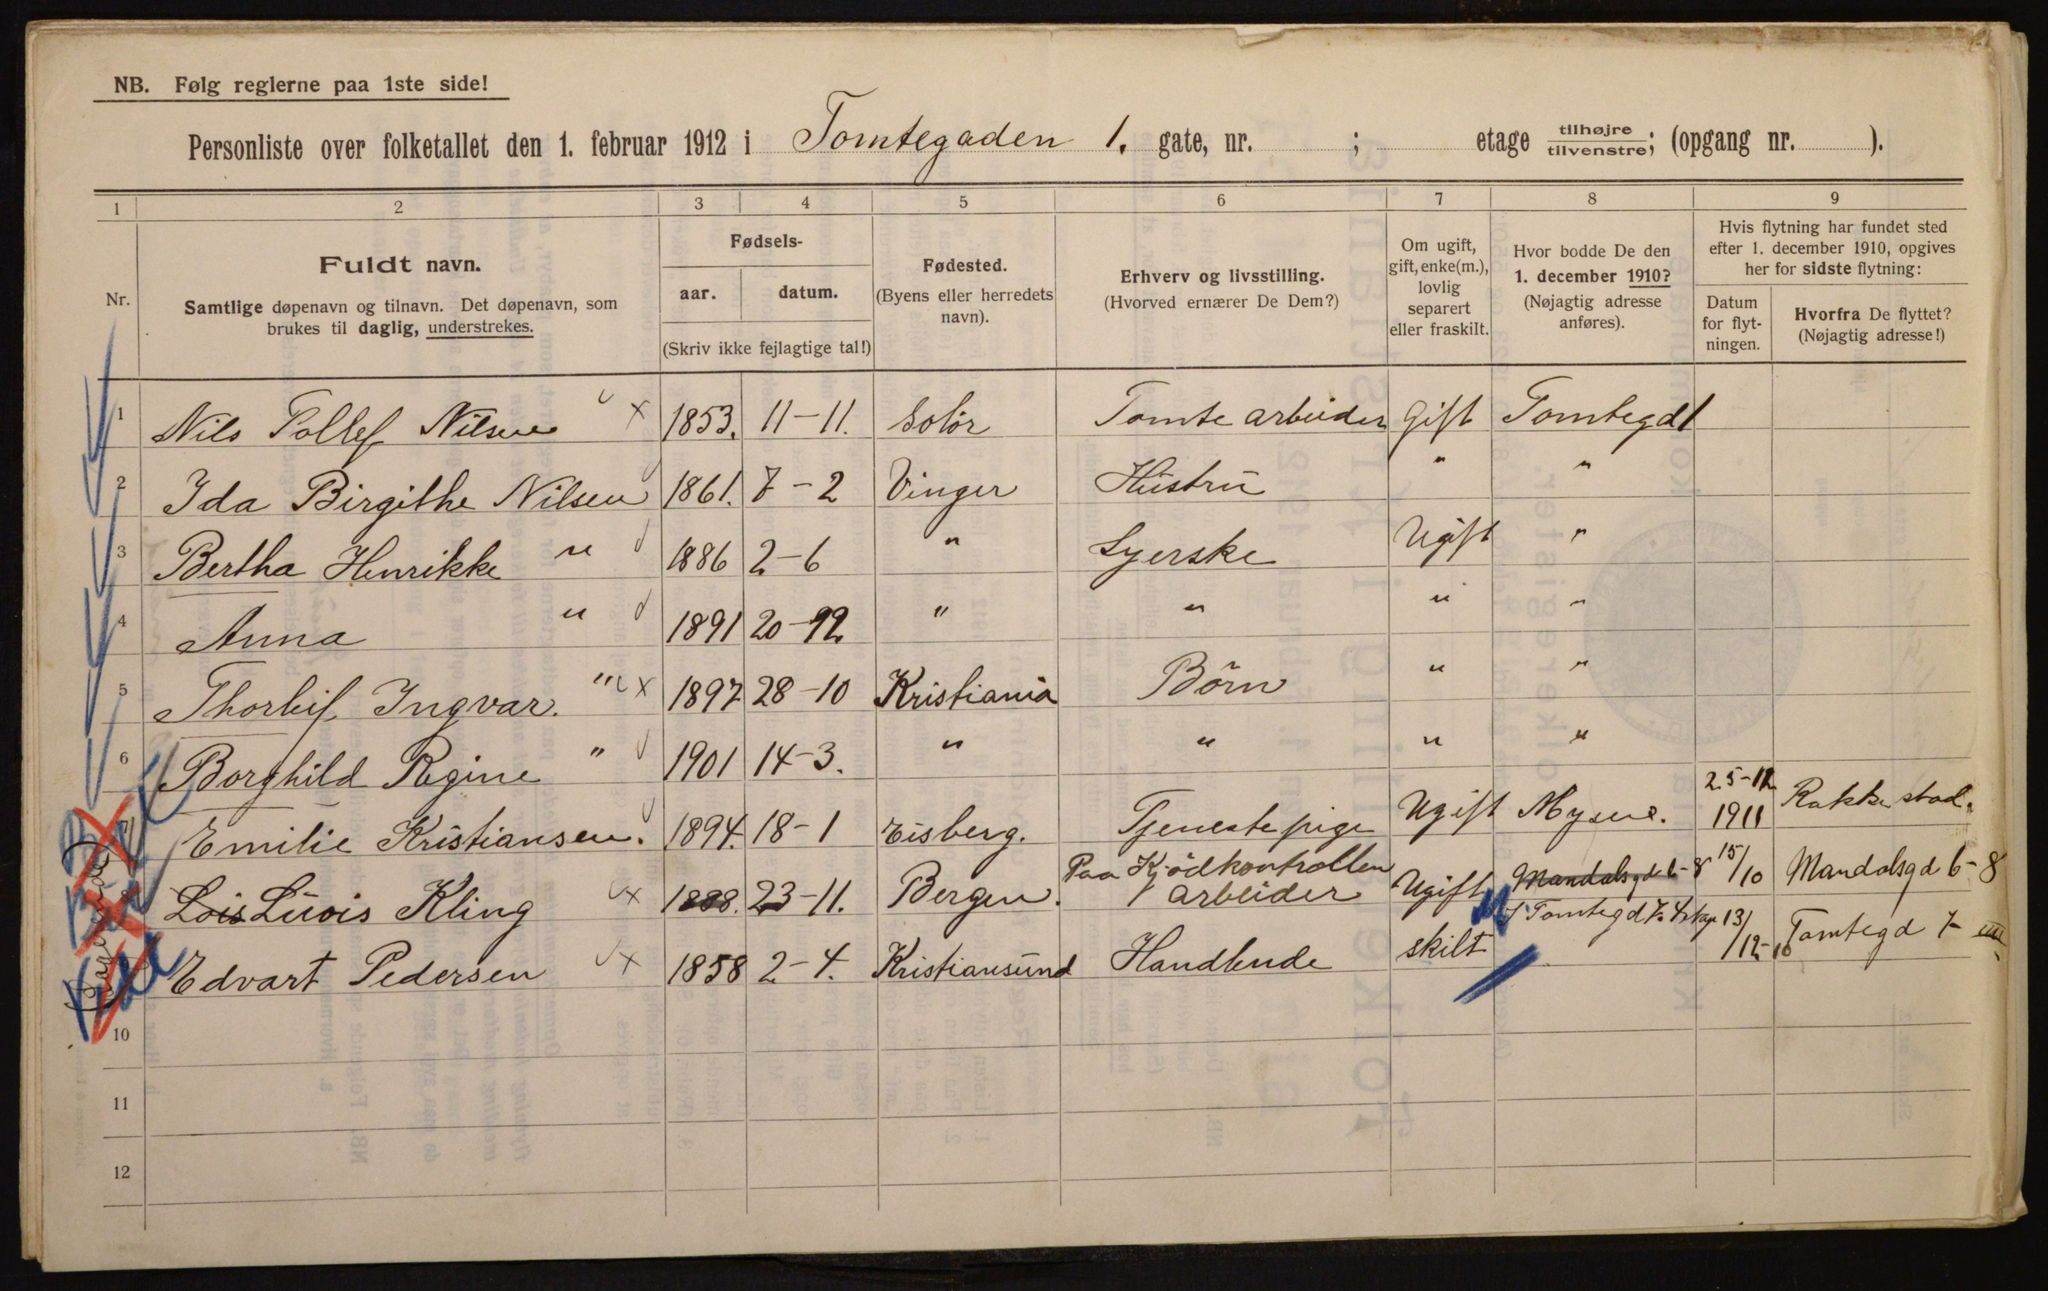 NB. Følg reglerne paa 1ste side!
Personliste over folketallet den 1. februar 1912 i Tomtegaden 1. gate, nr. ; etage tilhøjre tilvenstre; (opgang nr. ).
1 2 3 4 5 6 7 8 9
Nr.
Fuldt navn.
Samtlige døpenavn og tilnavn. Det døpenavn, som
brukes til daglig, understrekes.
Fødsels-
aar. datum.
(Skriv ikke fejlagtige tal!)
Fødested.
(Byens eller herredets
navn).
Erhverv og livsstilling.
(Hvorved ernærer De Dem?)
Om ugift,
gift, enke(m.),
lovlig
separert
eller fraskilt.
Hvor bodde De den
1. december 1910?
(Nøjagtig adresse
anføres).
Hvis flytning har fundet sted
efter 1. december 1910, opgives
her for sidste flytning:
Datum
for flyt-
ningen.
Hvorfra De flyttet?
(Nøjagtig adresse!)
1 Nils Tollef Nilsen x 1853. 11-11. Solør Tomte arbeider Gift Tomtegd 1
2 Ida Birgithe Nilsen 1861. 7-2 Vinger Hustru " "
3 Bertha Henrikke " 1886 2-6 " Syerske Ugift "
4 Anna " 1891 20-12. " " " "
5 Thorleif Ingvar. " x 1897 28-10 Kristiania Børn " "
6 Borghild Regine " 1901 14-3. " " " "
Emilie Kristiansen. 1894. 18-1 Eisberg. Tjenestepige Ugift Mysen. 25-12 1911 Rakkestad.
Lois Luois Kling x 1888. 23-11. Bergen. Paa Kjödkontrollen arbeider Ugift Mandalsgd 6-8 15/10 Mandalsgd 6-8
Edvart Pedersen x 1858 2-4. Kristiansund Handlende skilt Tomtegd 7 13/12-10 Tomtegd 7
10
11
12